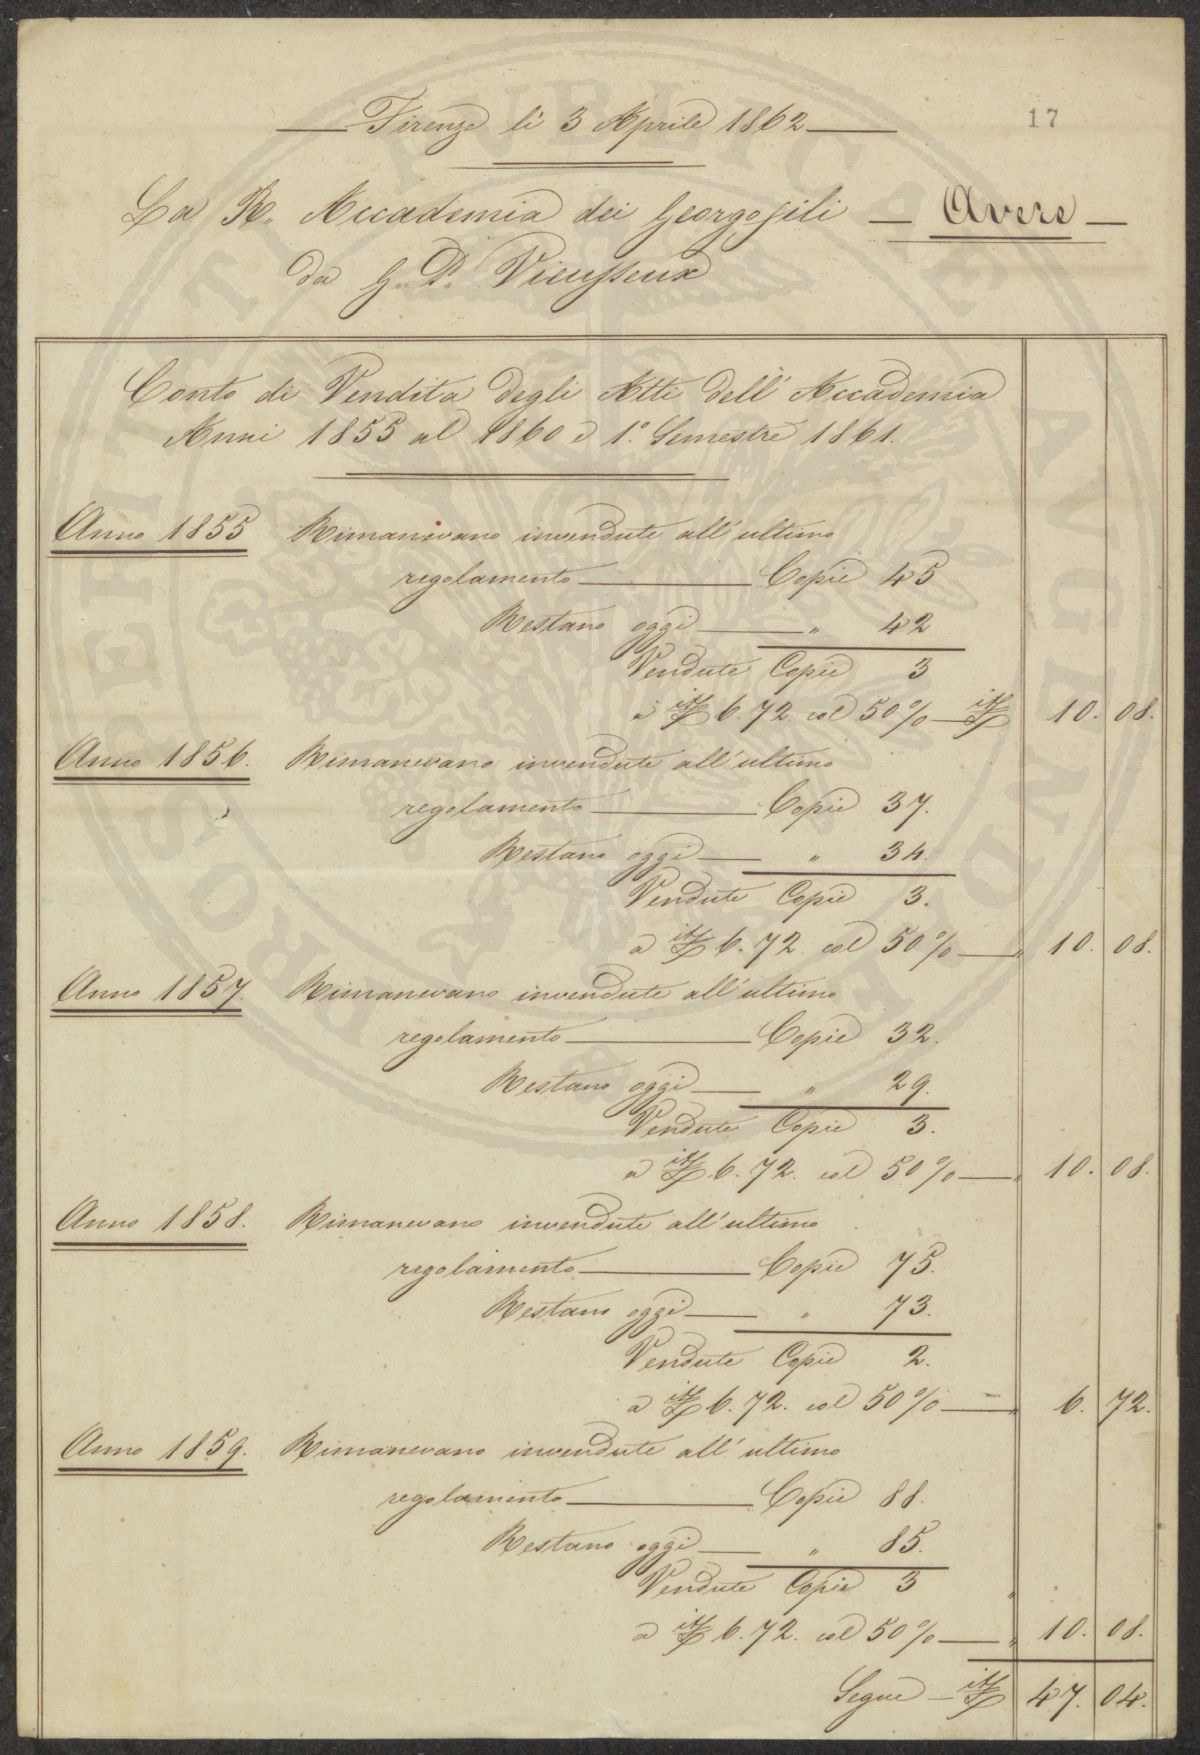 Firenze li 3 Aprile 1862
17
La R. Accademia dei Georgofili — Avere —
da G. P. Vieusseux
Conto di Vendita degli Atti dell'Accademia
Anni 1855 al 1860 e 1° Semestre 1861.
Anno 1855 Rimanevano invendute all'ultimo
regolamento Copie 45
Restano oggi " 42
Vendute Copie 3
a it£ 6.72. col 50% it£ 10. 08.
Anno 1856. Rimanevano invendute all'ultimo
regolamento Copie 37.
Restano oggi " 34.
Vendute Copie 3.
a it£ 6.72. col 50% " 10. 08.
Anno 1857. Rimanevano invendute all'ultimo
regolamento Copie 32.
Restano oggi " 29.
Vendute Copie 3.
a it£ 6.72. col 50% " 10. 08.
Anno 1858. Rimanevano invendute all'ultimo
regolamento Copie 75.
Restano oggi " 73.
Vendute Copie 2.
a it£ 6.72. col 50% " 6. 72.
Anno 1859. Rimanevano invendute all'ultimo
regolamento Copie 88.
Restano oggi " 85.
Vendute Copie 3
a it£ 6.72. col 50% " 10. 08.
Segue it£ 47. 04.
PROSPERITATI PVBLICAE AVGENDAE